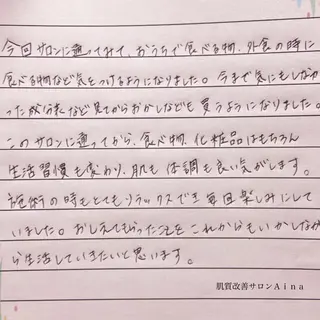 今回サロンに通ってみて、おうちで食べる物、外食の時に
食べる物など気をつけるようになりました。今まで気にもしなか
った成分表など見てからおかしなども買うようになりました。
このサロンに通ってから、食べ物、化粧品はもちろん
生活習慣も変わり、肌も体調も良い気がします。
施術の時もとてもリラックスでき毎回楽しみにして
いました。おしえてもらったことをこれからもいかしなが
ら生活していきたいと思います。
肌質改善サロンAina